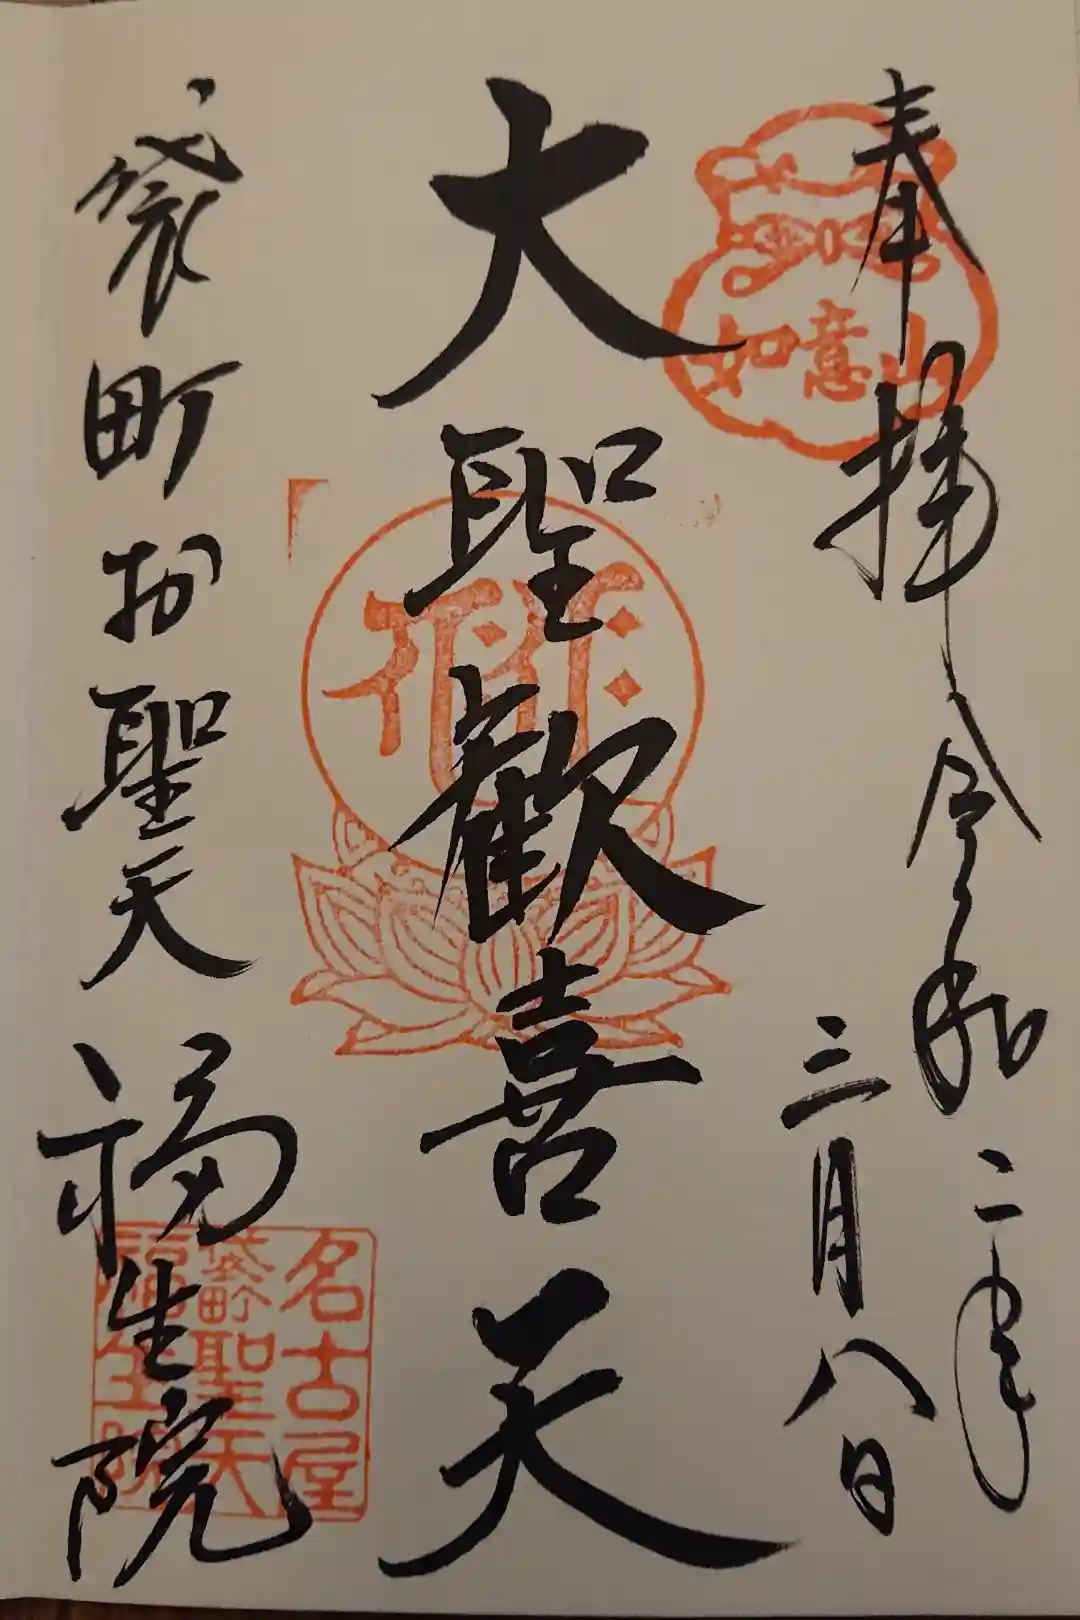 奉拝 令和二年
三月八日
大聖歓喜天
袋町お聖天 福生院
如意山
名古屋
袋町聖天
福生院